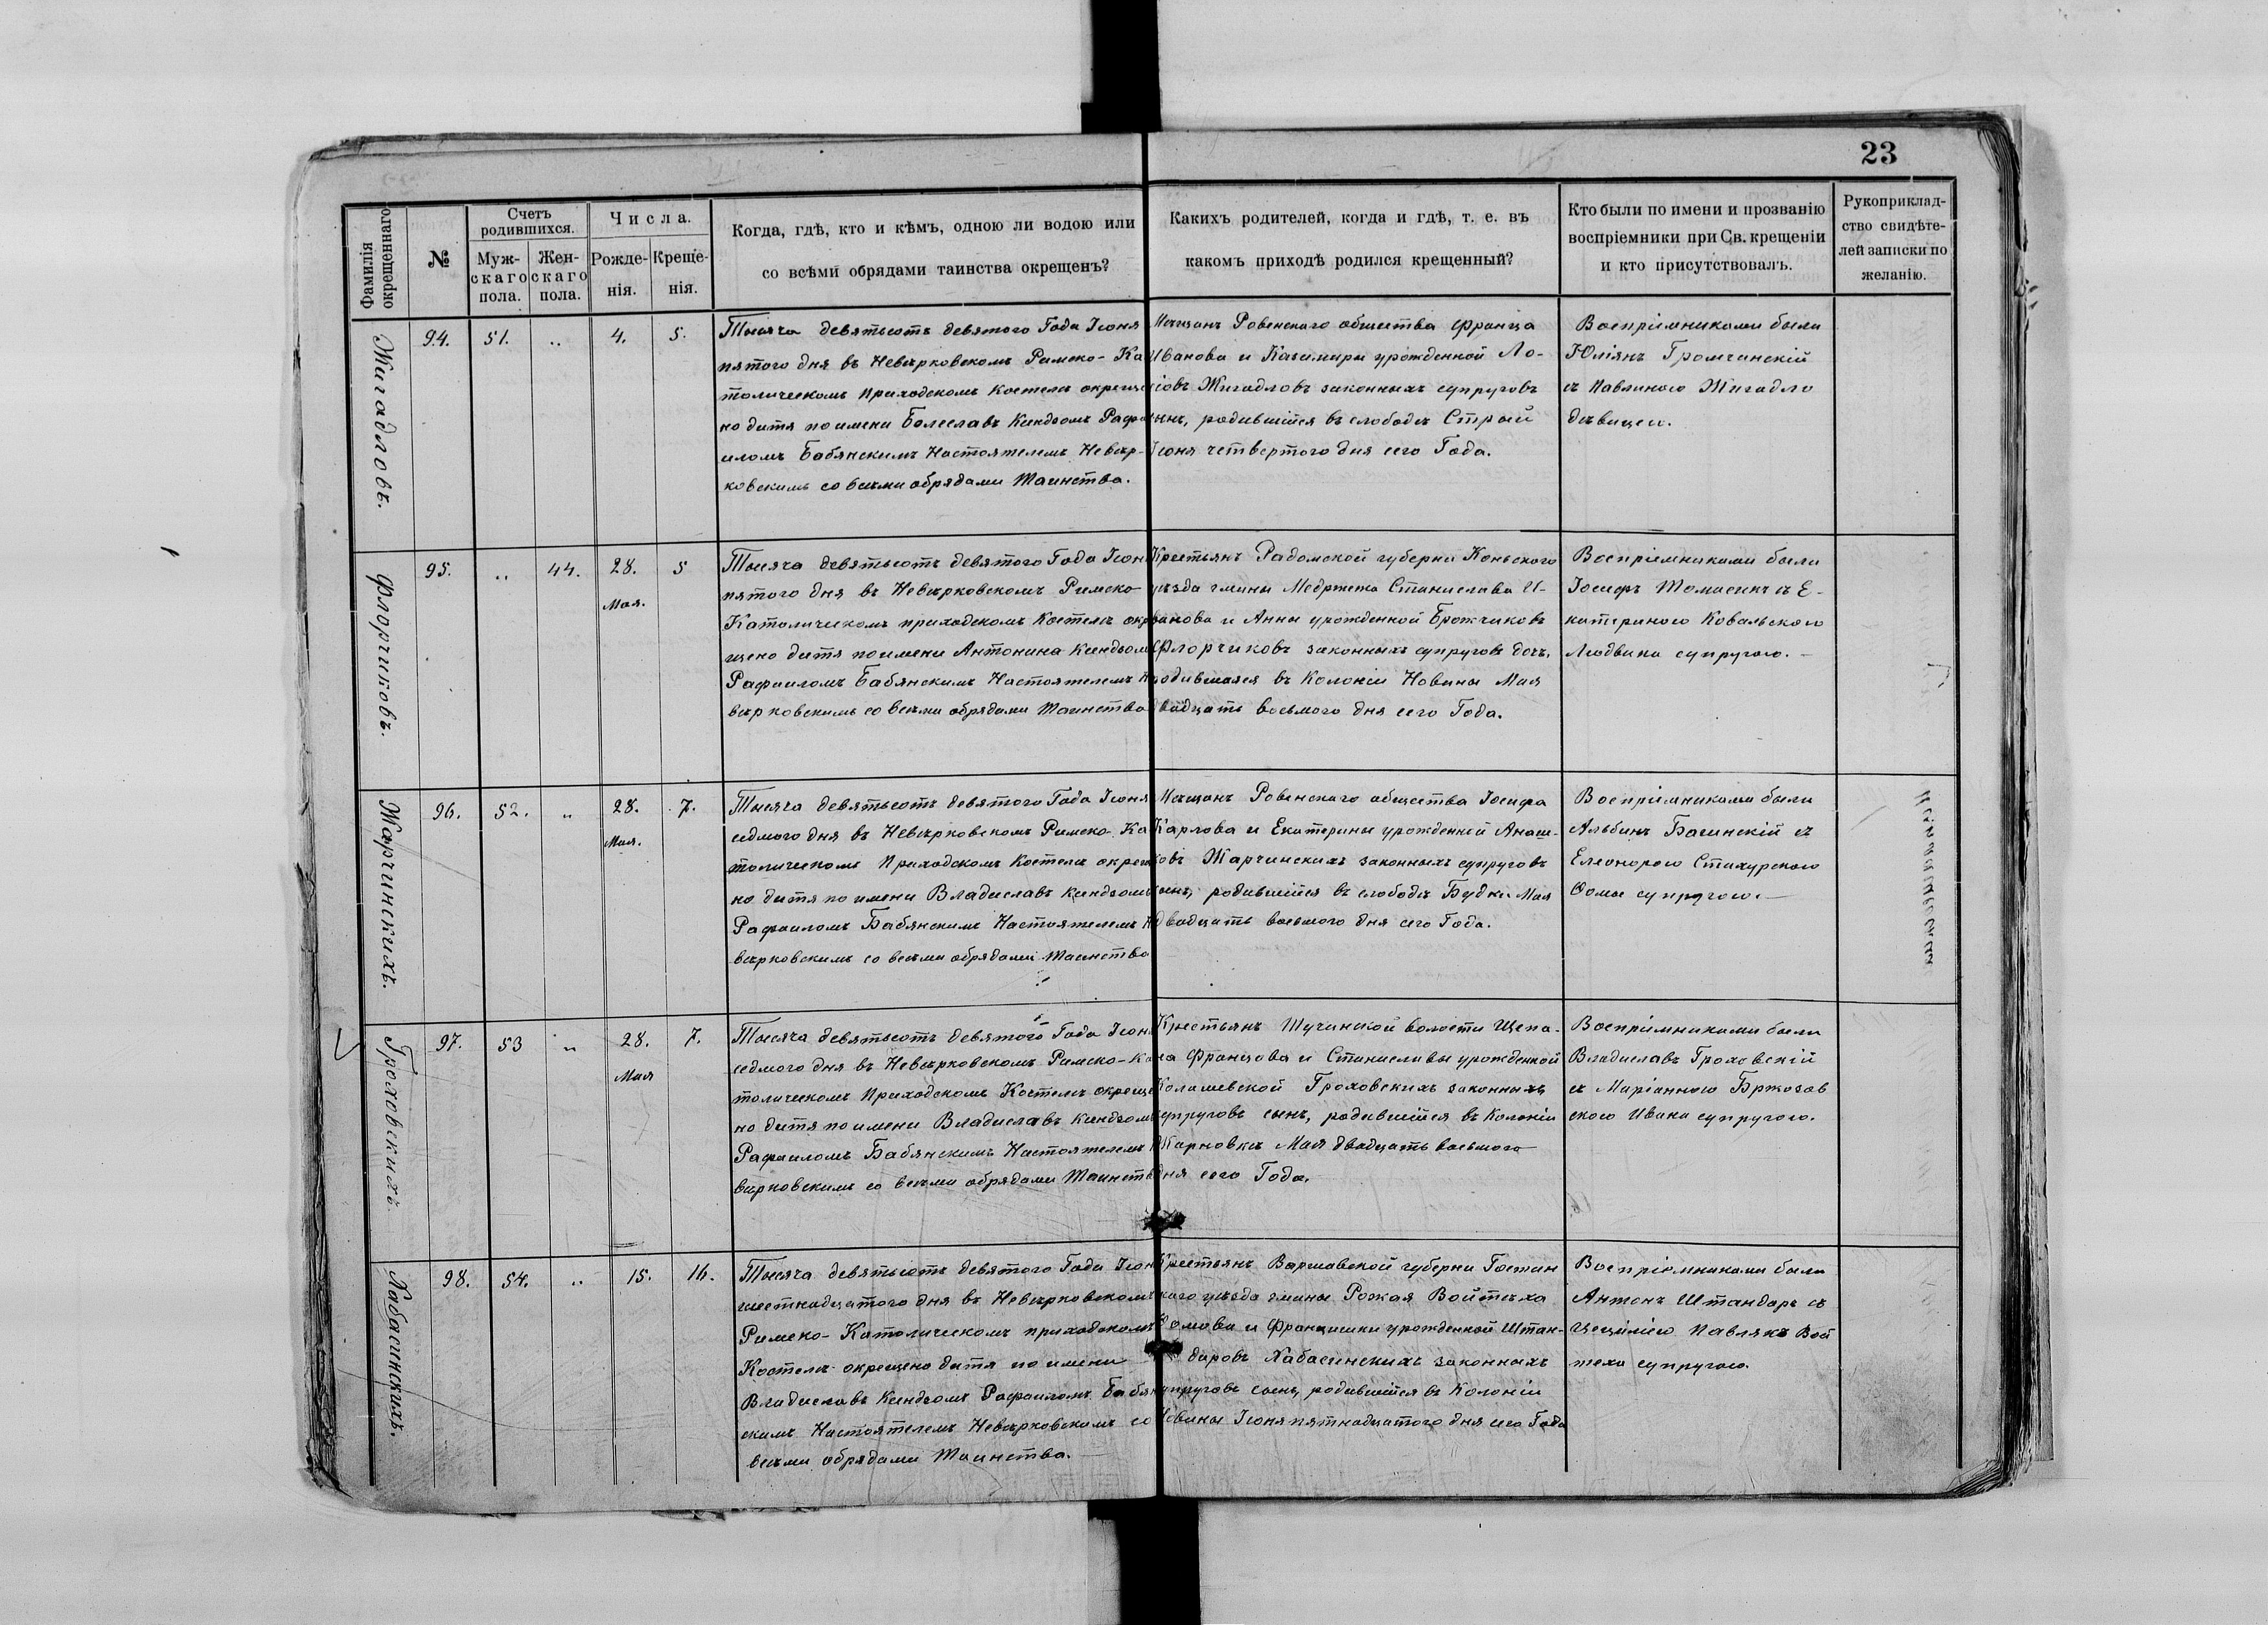 23
Фамилія окрещеннаго
№
Счетъ родившихся.
Мужскаго пола.
Женскаго пола.
Числа.
Рожденія.
Крещенія.
Когда, гдѣ, кто и кѣмъ, одною ли водою или
со всѣми обрядами таинства окрещенъ?
Какихъ родителей, когда и гдѣ, т. е. въ
какомъ приходѣ родился крещенный?
Кто были по имени и прозванію
воспріемники при Св. крещеніи
и кто присутствовалъ.
Рукоприклад-
ство свидѣте-
лей записки по
желанію.
Жигадловъ.
94. 51. „ 4. 5.
Тысяча девятьсотъ девятого Года Іюня
пятого дня въ Невѣрковскомъ Римско-Ка
толическомъ Приходскомъ Костелѣ окреще
но дитя по имени Болеславъ Ксендзомъ Рафа
иломъ Бабянскимъ Настоятелемъ Невѣр-
ковскимъ со всѣми обрядами Таинства.
Мѣщанъ Ровенскаго общества Франца
Иванова и Казимиры урожденной Ло-
совъ Жигадловъ законныхъ супруговъ
сынъ, родившійся въ слободѣ Строй
Іюня четвертого дня сего Года.
Воспріемниками были
Юліянъ Громчинскій
съ Павлиною Жигадло
дѣвицею.
Флорчиковъ.
95. „ 44. 28. 5
Мая.
Тысяча девятьсотъ девятого Года Іюня
пятого дня въ Невѣрковскомъ Римско-
Католическомъ приходскомъ Костелѣ окре
щено дитя по имени Антонина Ксендзомъ
Рафаиломъ Бабянскимъ Настоятелемъ Не
вѣрковскимъ со всѣми обрядами Таинства
Крестьянъ Радомской губерни Коньского
уѣзда гмины Медржежа Станислава И-
ванова и Анны урожденной Брожчиковъ
Флорчиковъ законныхъ супруговъ дочь,
родившаяся въ Колоніи Новины Мая
двадцать восьмого дня сего Года.
Воспріемниками были
Іосифъ Томасикъ съ Е-
катериною Ковальскою
Людвика супругою.
Жарчинскихъ.
96. 52. „ 28. 7.
Мая.
Тысяча девятьсотъ девятого Года Іюня
седмого дня въ Невѣрковскомъ Римско Ка
толическомъ Приходскомъ Костелѣ окреще
но дитя по имени Владиславъ Ксендзомъ
Рафаиломъ Бабянскимъ Настоятелемъ Не
вѣрковскимъ со всѣми обрядами Таинства
Мѣщанъ Ровенскаго общества Іосифа
Карлова и Екатерины урожденной Анаш-
ковъ Жарчинскихъ законныхъ супруговъ
сынъ, родившійся въ слободѣ Будки Мая
двадцать восьмого дня сего Года.
Воспріемниками были
Альбинъ Багинскій съ
Елеонорою Стахурскою
Фомы супругою.
Гроховскихъ
97. 53 „ 28. 7.
Мая
Тысяча девятьсотъ девятого Года Іюня
седмого дня въ Невѣрковскомъ Римско-Ка
толическомъ Приходскомъ Костелѣ окреще
но дитя по имени Владиславъ Ксендзомъ
Рафаиломъ Бабянскимъ Настоятелемъ Не
вѣрковскимъ со всѣми обрядами Таинства
Крестьянъ Шучинской волости Щепа-
на Францова и Станиславы урожденной
Колашевской Гроховскихъ законныхъ
супруговъ сынъ, родившійся въ Колоніи
Жарновкѣ Мая двадцать восьмого
дня сего Года.
Воспріемниками были
Владиславъ Гроховскій
съ Маріанною Бржозов
скою Ивана супругою.
Хабасинскихъ.
98. 54. „ 15. 16.
Тысяча девятьсотъ девятого Года Іюня
шестнадцатого дня въ Невѣрковскомъ
Римско-Католическомъ приходскомъ
Костелѣ окрещено дитя по имени
Владиславъ Ксендзомъ Рафаиломъ Бабян
скимъ Настоятелемъ Невѣрковскимъ со
всѣми обрядами Таинства.
Крестьянъ Варшавской губерни Гостин
скаго уѣзда гмины Рожая Войтѣха
Фомова и Францишки урожденной Штан-
даровъ Хабасинскихъ законныхъ
супруговъ сынъ, родившійся въ Колоніи
Новины Іюня пятнадцатого дня сего Года
Воспріемниками были
Антонъ Штандаръ съ
Цециліею Павлякъ Вой
теха супругою.